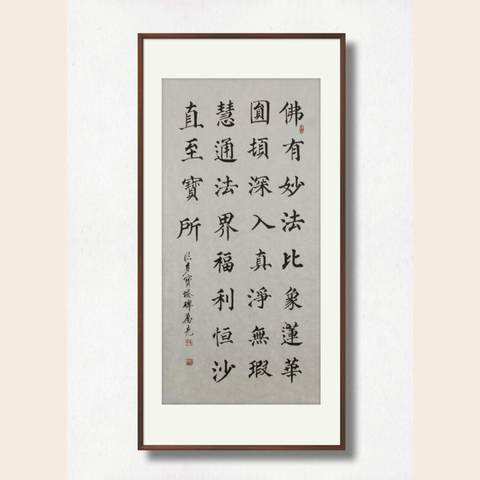 佛有妙法比象蓮華
圓頓深入真淨無瑕
慧通法界福利恒沙
直至寶所